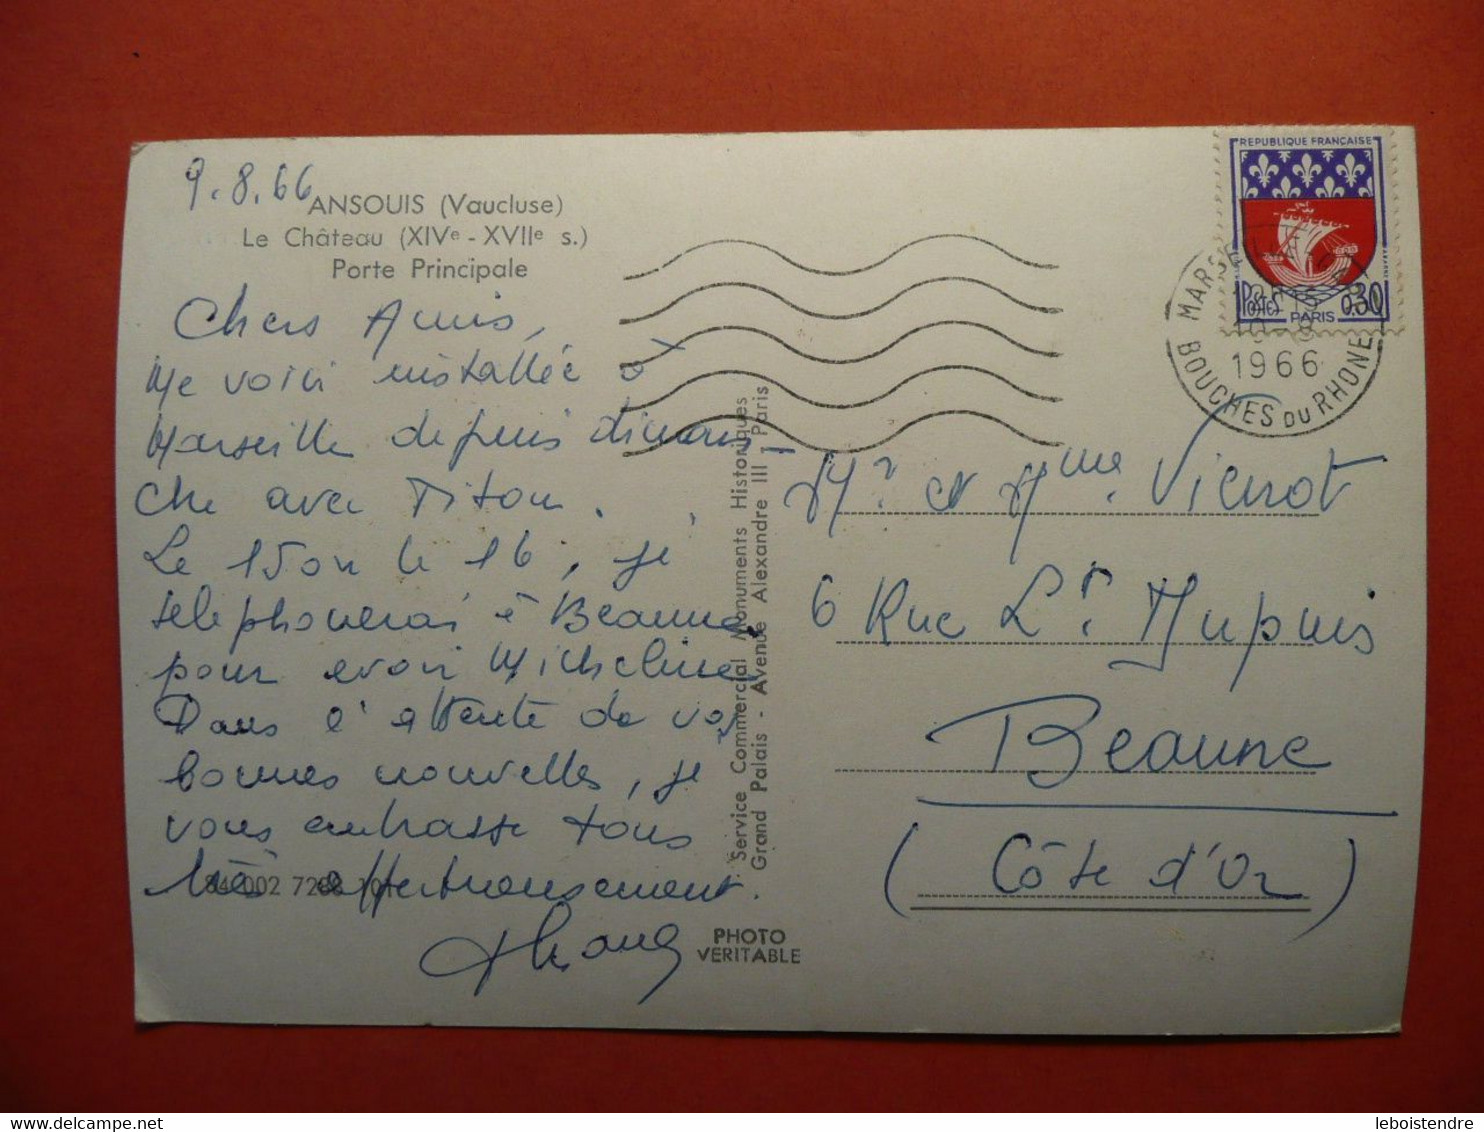 9.8.66
ANSOUIS (Vaucluse)
Le Château (XIVe - XVIIe s.)
Porte Principale
Chers Amis,
Me voici installée à
Marseille depuis diman-
che avec Titou.
Le 15 ou le 16, je
telephonerai à Beaune
pour avoir Micheline
Dans l'attente de vos
bonnes nouvelles, je
vous embrasse tous
très affectueusement.
84 002 101
PHOTO
VERITABLE
Service Commercial Monuments Historiques
Grand Palais - Avenue Alexandre III, Paris
REPUBLIQUE FRANÇAISE
POSTES PARIS 0,30
MARSEILLE
1966
BOUCHES DU RHONE
Mr et Mme Vienot
6 Rue Lt. Dupuis
Beaune
(Côte d'Or)
leboistendre